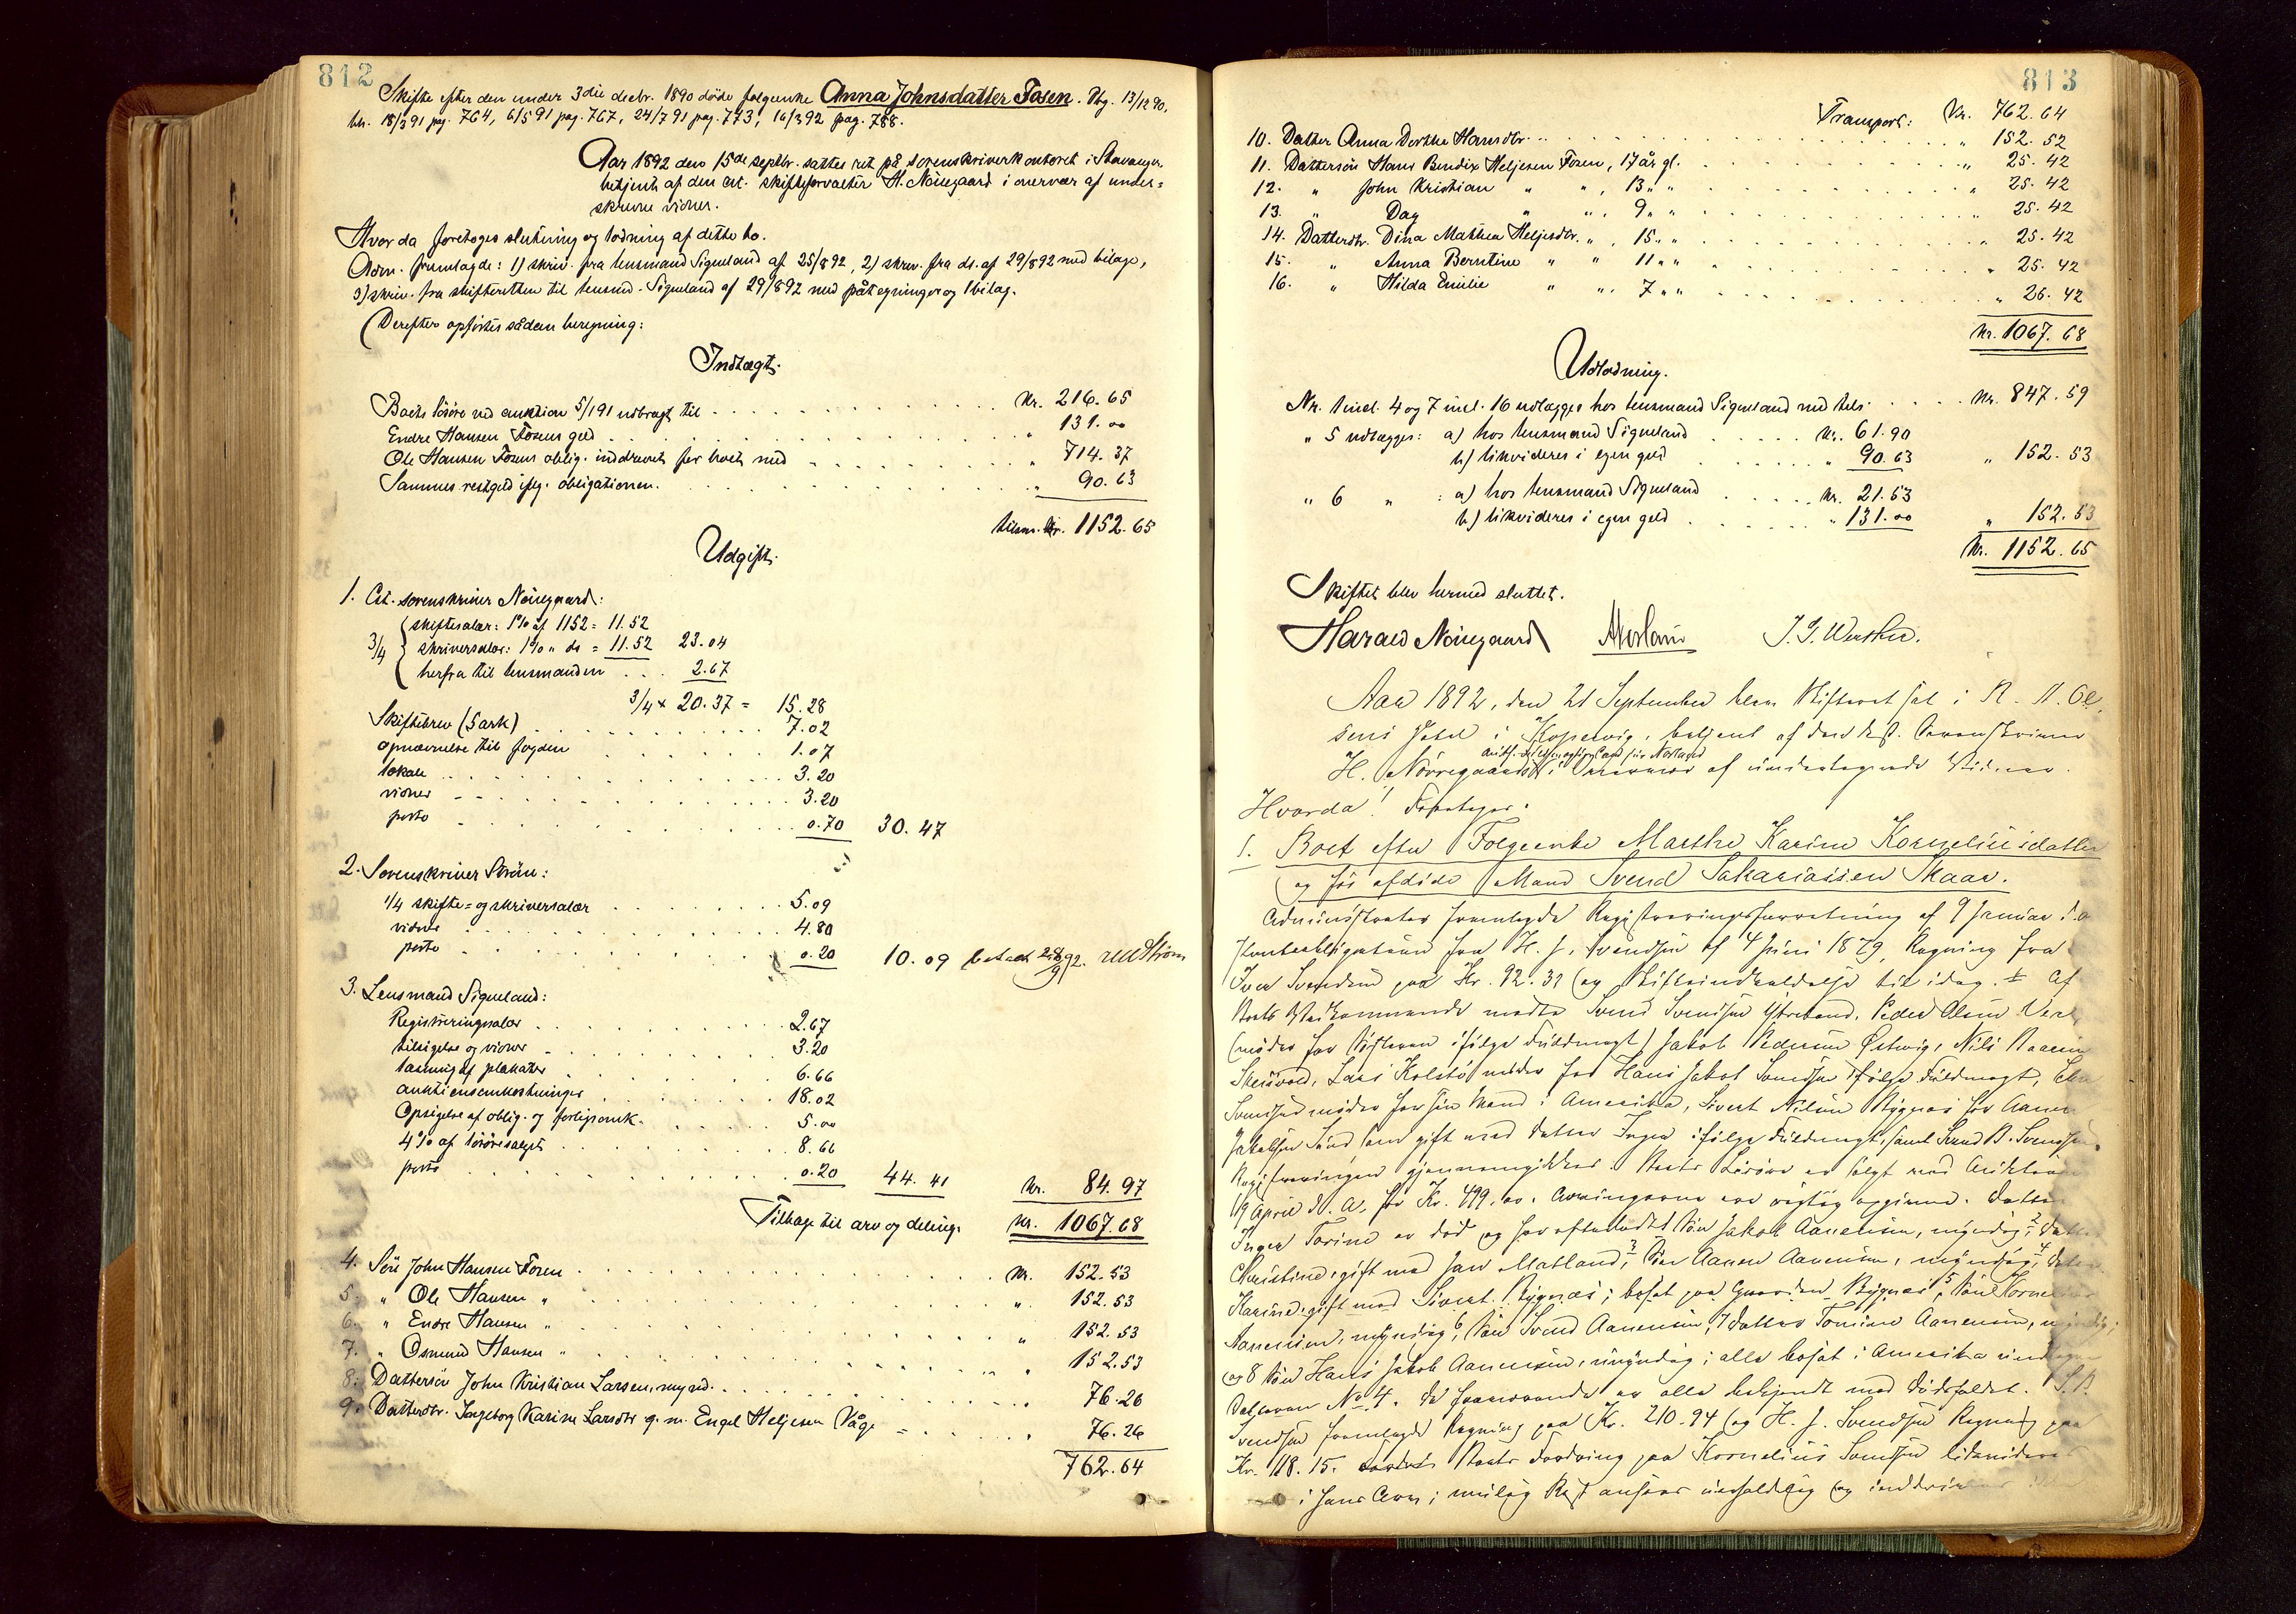 812
Skifte efter den under 3die decbr. 1890 døde følgeenke Anna Johnsdatter Fosen. Dbg. 13/12 90,
beh. 18/3 91 pag. 764, 6/5 91 pag. 767, 24/7 91 pag. 773, 16/3 92 pag. 788.
Aar 1892 den 15de septbr. sattes ret på sorenskriverkontoret i Stavanger
betjent af den cst. skifteforvalter H. Nörregaard i overvær af under=
skrevne vidner.
Hvorda foretoges slutning og lodning af dette bo.
Adm. fremlagde: 1) skriv. fra lensmand Signeland af 25/8 92, 2) skriv. fra ds. af 29/8 92 med bilage,
3) skriv. fra skifteretten til lensmd. Signeland af 29/8 92 med påtegninger og 1 bilag.
Derefter opførtes sådan beregning:
Indtægt.
Boets løsøre ved auktion 5/1 91 udbragt til Kr. 216.65
Endre Hansen Fosens geld " 131.00
Ole Hansen Fosens oblig. inddrevet for boet med " 714.37
Sammes restgeld iflg. obligationen " 90.63
tilsm. Kr. 1152.65
Udgift.
1. Cst. sorenskriver Nörregaard:
3/4 skiftesalær: 1% af 1152 = 11.52
skriversalær: 1% " do = 11.52 23.04
herfra til lensmanden 2.67
3/4 × 20.37 = 15.28
Skiftebrev (5 ark) 7.02
opnævnelse til fogden 1.07
lokale 3.20
vidner 3.20
porto 0.70 30.47
2. Sorenskriver Ström:
1/4 skifte= og skriversalær 5.09
vidner 4.80
porto 0.20 10.09 betalt
3. Lensmand Signeland:
Registreringssalær 2.67
tilsigelse og vidner 3.20
læsning af plakater 6.66
auktionsomkostninger 18.02
Opsigelse af oblig. og forligsomk. 5.00
4% af løsøresalget 8.66
porto 0.20 44.41 Kr. 84.97
Tilbage til arv og deling Kr. 1067.68
4. Søn John Hansen Fosen Kr. 152.53
5. " Ole Hansen " " 152.53
6. " Endre Hansen " " 152.53
7. " Osmund Hansen " " 152.53
8. Dattersøn John Kristian Larsen, mynd. " 76.26
9. Datterdtr. Ingeborg Karine Larsdtr g. m. Engel Heljesen Våge " 76.26
762.64
813
Transport: Kr. 762.64
10. Datter Anna Dorthe Hansdtr. " 152.52
11. Dattersøn Hans Bendix Heljesen Fosen, 17 år gl. " 25.42
12. " John Kristian " " , 13 " " " 25.42
13. " Dag " " , 9 " " " 25.42
14. Datterdtr. Dina Mathea Heljesdtr. " , 15 " " " 25.42
15. " Anna Berntine " " 11 " " " 25.42
16. " Hilda Emilie " " , 7 " " " 26.42
Kr. 1067.68
Udlodning.
Nr. 1 incl. 4 og 7 incl. 16 udlægges hos lensmand Signeland med tils. Kr. 847.59
" 5 udlægges: a) hos lensmand Signeland Kr. 61.90
b) likvideres i egen geld " 90.63 " 152.53
" 6 " : a) hos lensmand Signeland Kr. 21.53
b) likvideres i egen geld " 131.00 " 152.53
Kr. 1152.65
Skiftet blev hermed sluttet.
Harald Nörregaard
Aar 1892, den 21 September blev Skifteret sat i R. A. Ol
sens Hotel i Kopervig, betjent af den kst. Sorenskriver
H. Nørregaard i Overvær af undertegnede Vidner.
Hvorda! Foretoges:
1. Boet efter Følgeenke Marthe Karine Korneliusdatter
og før afdøde Mand Svend Sakariassen Skaar.
Administrator fremlagde Registreringsforretning af 9 Januar d.a
Panteobligation fra H. J. Svendsen af 4 Juni 1879, Regning fra
Iver Svendsen paa Kr. 92.31 og Skifteindkaldelse til idag. Af
Boets Vedkommende mødte Svend Svendsen Ytreland, Peder Olsen
(møder for Søsteren ifølge Fuldmagt) Jakob Pedersen Østevig, Nils
Lars Kolstø møder for Hans Jakob Svendsen ifølge Fuldmagt,
Svendsen møder for sin Mand i Amerika, Sivert Nilsen Bygnes for Aanen
Jakobsen Sund som gift med Datter Inger ifølge Fuldmagt, samt Svend B. Svendsen.
Registreringen gjennemgikkes. Boets Løsøre er solgt ved Auktion
19 April d. A. for Kr. 499.00. Arvingerne ere rigtig opgivne. Datter
Inger Torine er død og har efterladt Søn Jakob Aanensen, myndig, 2 Datter
Kristine, gift med Jan Matland, 3 Søn Aanen Aanensen, myndig, 4 Datter
Karine, gift med Sivert Bygnes; bosat paa Gaarden Bygnes, 5 Søn Kornelius
Aanensen, myndig, 6 Søn Svend Aanensen, 7 Datter Tomine Aanensen, myndig;
og 8 Søn Hans Jakob Aanensen, umyndig; alle bosat i Amerika undtagen
Datteren No 4. De fraværende er alle bekjendt med Dødsfaldet. S. B.
Svendsen fremlagde Regning paa Kr. 210.94 og H. J. Svendsen Regning paa
Kr. 118.15. Boets Fordring paa Kornelius Svendsen likvideres
i hans Arv; mulig Rest ansees uerholdelig og inddrives